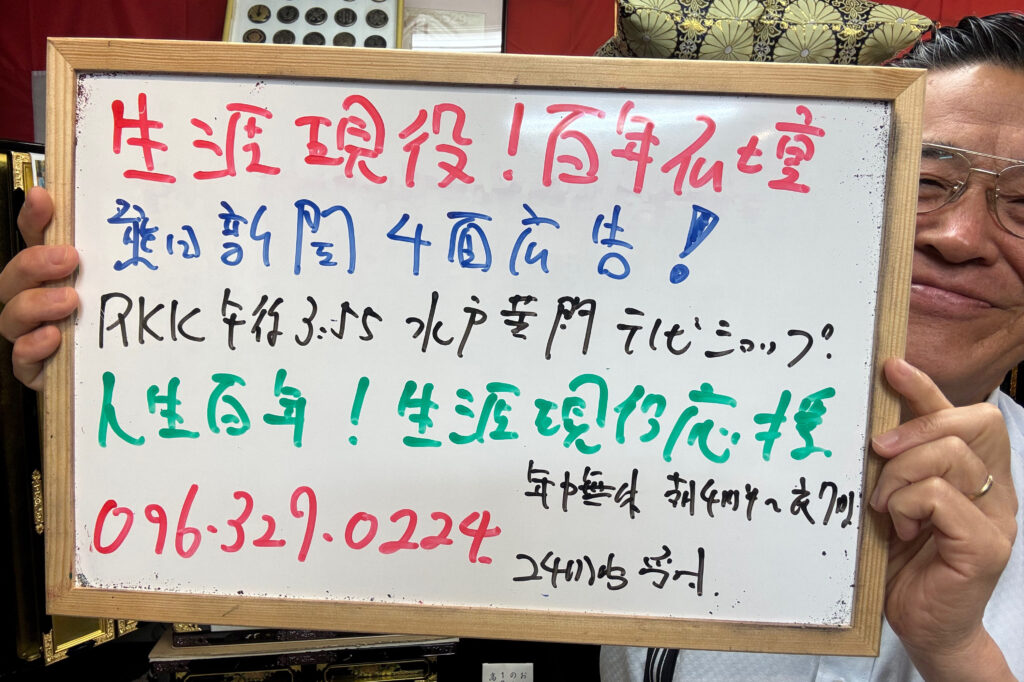 生涯現役！百年仏壇
熊日新聞 4面広告！
RKK 午後3.55 水戸黄門 テレビショップ.
人生百年！生涯現役応援
年中無休 朝4時半〜夜7時
096.327.0224
24時間受付.